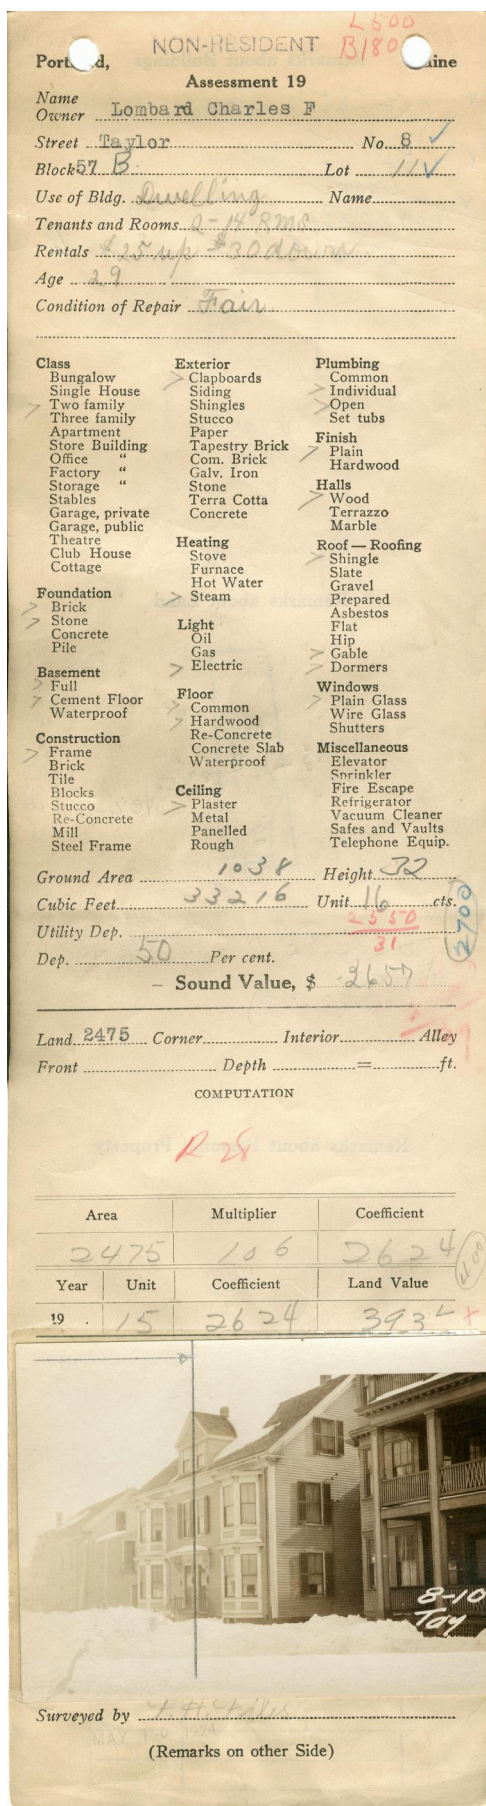 L500
NON-RESIDENT B180
Portland, Maine
Assessment 19
Name
Owner Lombard Charles F
Street Taylor No. 8 ✓
Block 57 B Lot 11 ✓
Use of Bldg. Dwelling Name
Tenants and Rooms 2-14 Rms
Rentals $25 up $30 down
Age 29
Condition of Repair Fair
Class
Bungalow
Single House
> Two family
Three family
Apartment
Store Building
Office "
Factory "
Storage "
Stables
Garage, private
Garage, public
Theatre
Club House
Cottage
Foundation
> Brick
> Stone
Concrete
Pile
Basement
> Full
> Cement Floor
Waterproof
Construction
> Frame
Brick
Tile
Blocks
Stucco
Re-Concrete
Mill
Steel Frame
Exterior
> Clapboards
Siding
Shingles
Stucco
Paper
Tapestry Brick
Com. Brick
Galv. Iron
Stone
Terra Cotta
Concrete
Heating
Stove
Furnace
Hot Water
> Steam
Light
Oil
Gas
> Electric
Floor
> Common
> Hardwood
Re-Concrete
Concrete Slab
Waterproof
Ceiling
> Plaster
Metal
Panelled
Rough
Plumbing
Common
> Individual
> Open
Set tubs
Finish
> Plain
Hardwood
Halls
> Wood
Terrazzo
Marble
Roof — Roofing
> Shingle
Slate
Gravel
Prepared
Asbestos
Flat
Hip
> Gable
> Dormers
Windows
> Plain Glass
Wire Glass
Shutters
Miscellaneous
Elevator
Sprinkler
Fire Escape
Refrigerator
Vacuum Cleaner
Safes and Vaults
Telephone Equip.
Ground Area 1038 Height 32
Cubic Feet 33216 Unit 16 cts.
2550
31
2700
Utility Dep.
Dep. 50 Per cent.
– Sound Value, $ 2657
Land 2475 Corner Interior Alley
Front Depth = ft.
COMPUTATION
R 28
Area Multiplier Coefficient
2475 106 2624
400
Year Unit Coefficient Land Value
19 . 15 2624 393
8-10
Tay
Surveyed by
(Remarks on other Side)